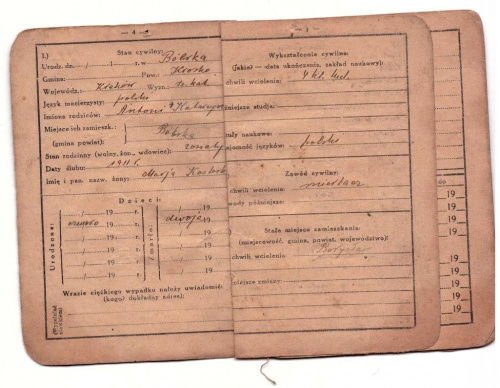 — 4 —
1.) Stan cywilny:
Urodz. dn. / / r. w Bólska
Gmina: Pow.:
Wojewódz. Kraków Wyzn. rz. kat.
Język macierzysty: polski
Imiona rodziców: Antoni i Katarzyna
Miejsce ich zamieszk.:
(gmina powiat): Bólska
Stan rodzinny (wolny, żon., wdowiec): żonaty
Daty ślubu: 1911 r.
Imię i pan. nazw. żony: Marja
Dzieci:
Urodzone:
/ 19 r.
/ 19 r.
/ 19 r.
/ 19 r.
Zmarłe:
dwoje
/ 19
/ 19
/ 19
/ 19
W razie ciężkiego wypadku należy uwiadomić:
(kogo? dokładny adres):
Wykształcenie cywilne:
(jakie? — data ukończenia, zakład naukowy):
chwili wcielenia: 4 kl. lud.
niejsze studja:
uły naukowe:
jomość języków: polski
Zawód cywilny:
chwili wcielenia:
wody późniejsze:
Stałe miejsce zamieszkania:
(miejscowość, gmina, powiat, województwo):
chwili wcielenia:
niejsze zmiany:
do
19
19
19
19
19
19
19
19
19
19